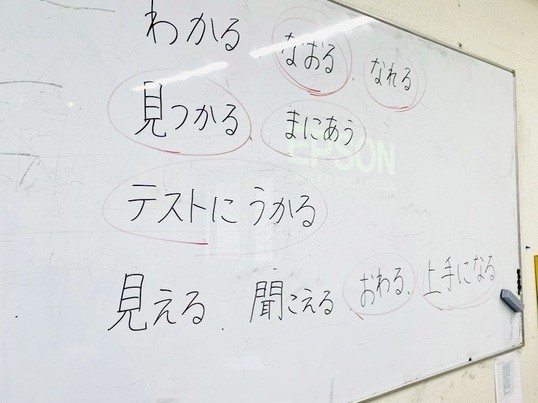 わかる、なおる、なれる
見つかる まにあう
EPSON
テストにうかる
見える、聞こえる おわる、上手になる